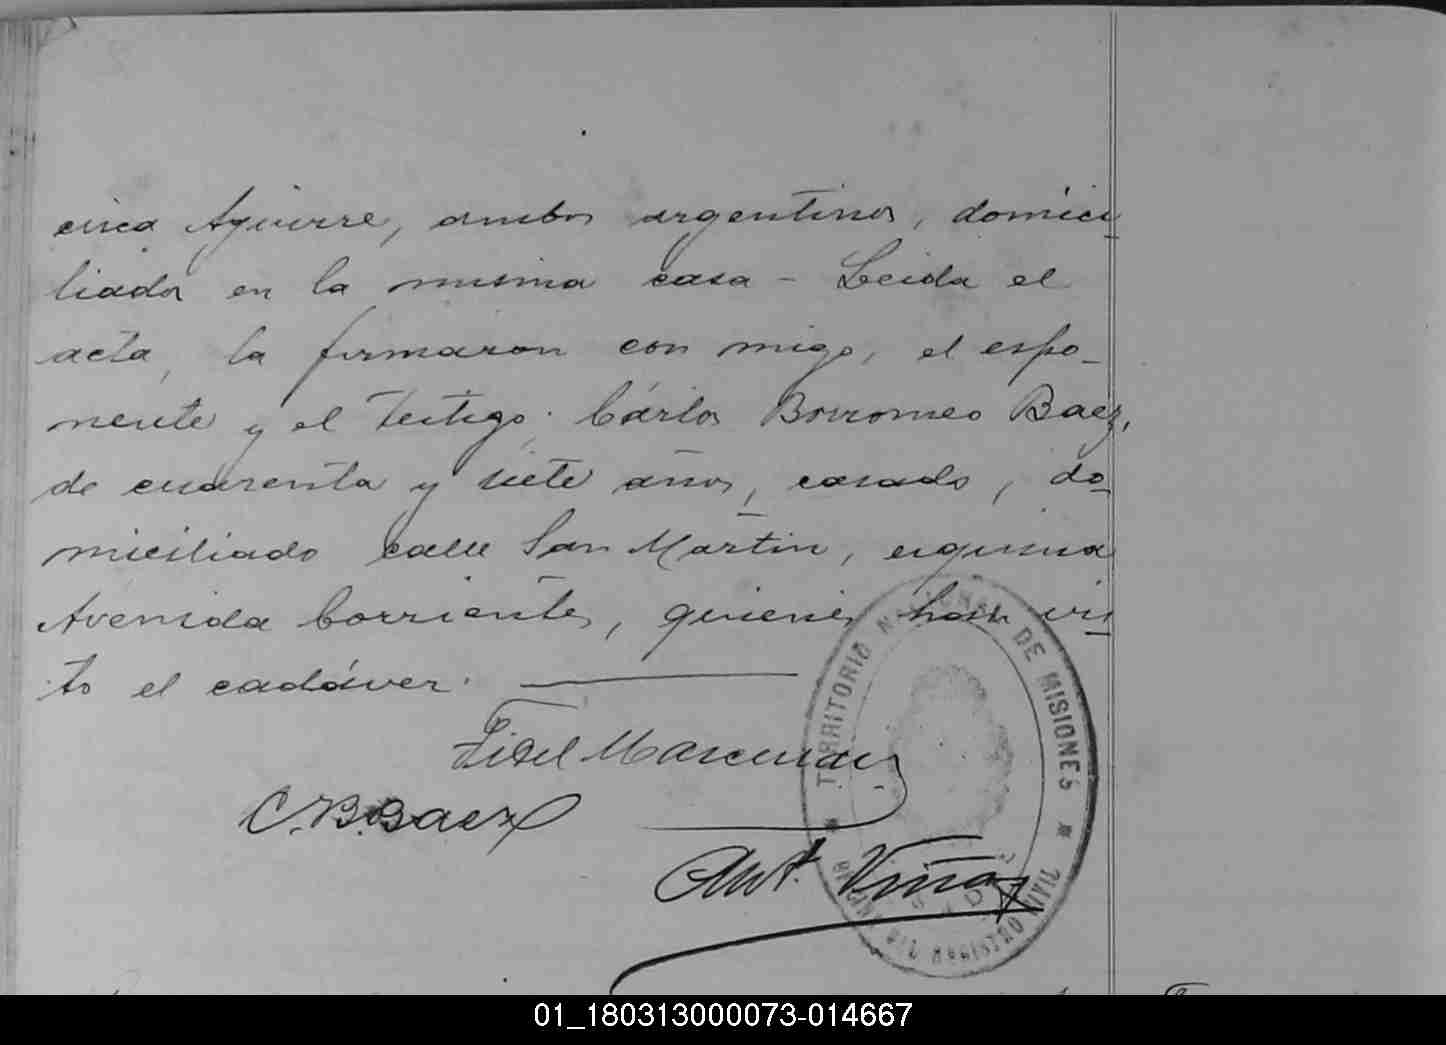 cisca Aguirre, ambos argentinos, domici
liados en la misma casa - Leida el
acta, la firmaron con migo, el espo-
nente y el testigo: Cárlos Borromeo Baez,
de cuarenta y siete años, casado, do-
miciliado calle San Martin, esquina
Avenida Corrientes, quienes han vis
to el cadáver.
Fidel
C.B.Baez
Ant. Viñas
TERRITORIO NACIONAL DE MISIONES
REGISTRO CIVIL
01_180313000073-014667